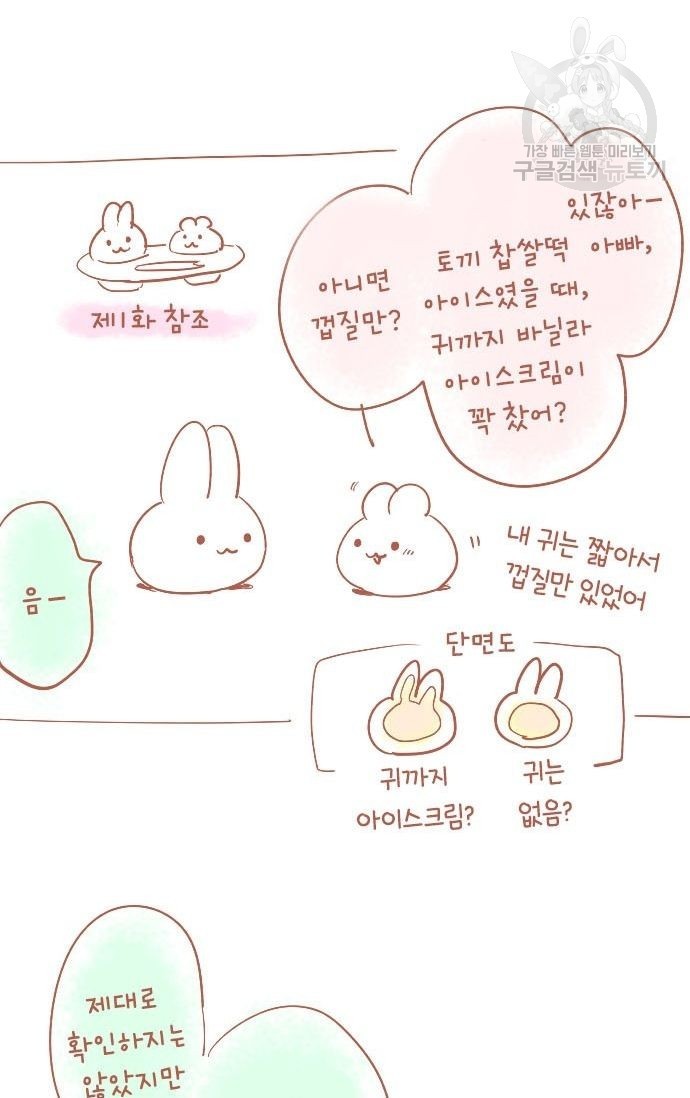 가장 빠른 웹툰 미리보기
구글검색 뉴토끼
있잖아-
아빠,
토끼 찹쌀떡
아이스였을 때,
귀까지 바닐라
아이스크림이
꽉 찼어?
아니면
껍질만?
제1화 참조
내 귀는 짧아서
껍질만 있었어
음-
단면도
귀까지
아이스크림?
귀는
없음?
제대로
확인하지는
않았지만